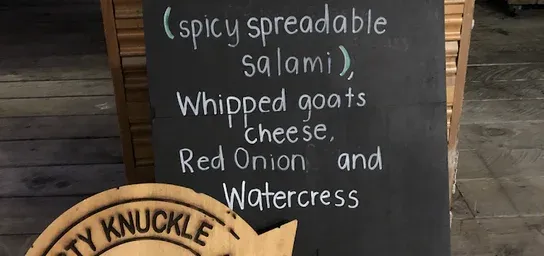 (spicy spreadable
salami),
Whipped goats
cheese,
Red Onion and
Watercress
KNUCKLE